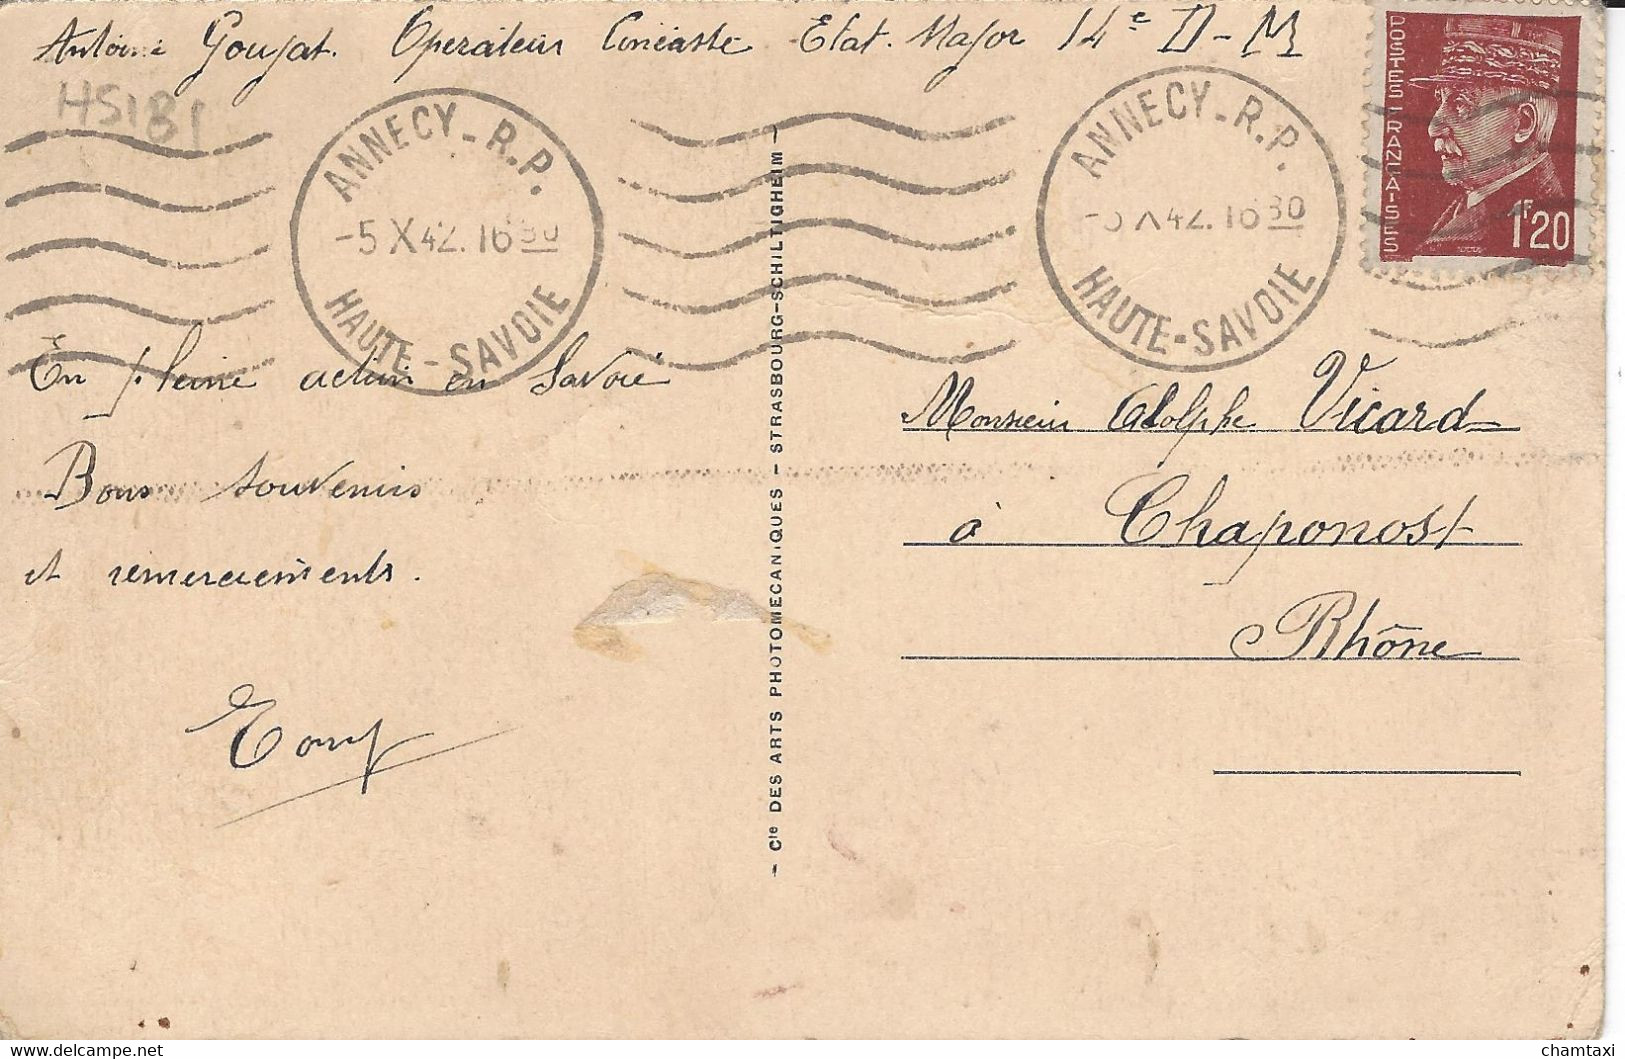 Antoine Goujat. Operateur Cinéaste Etat. Major 14e D-M
HS181
ANNECY - R.P.
-5 X 42. 16 30
HAUTE - SAVOIE
ANNECY - R.P.
-5 X 42. 16 30
HAUTE - SAVOIE
POSTES FRANÇAISES
1F20
En pleine action en Savoie
Bons souvenirs
et remerciements.
Tony
- Cie DES ARTS PHOTOMECANIQUES - STRASBOURG-SCHILTIGHEIM -
Monsieur Adolphe Vicard
à Chaponost
Rhône
delcampe.net
chamtaxi